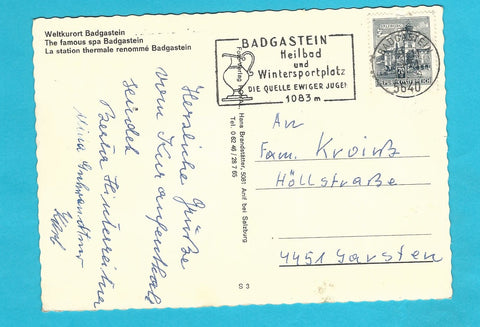 Weltkurort Badgastein
The famous spa Badgastein
La station thermale renommé Badgastein
Herzliche Grüße
vom Kuraufenthalt
sendet
Berta Hinterreitner
Karl
Hans Brandstätter, 5081 Anif bei Salzburg
Tel. 0 62 46 / 28 7 65
S 3
BADGASTEIN
Heilbad
und
Wintersportplatz
DIE QUELLE EWIGER JUGEND
1083 m
BADGASTEIN
5640
An
Fam. Kroiß
Höllstraße
4451 Garsten